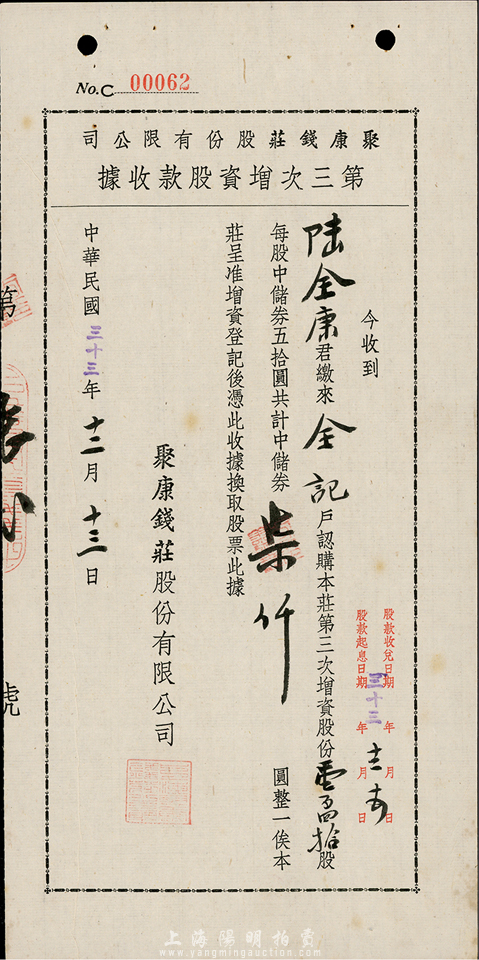 No.C 00062
聚康錢莊股份有限公司
第三次增資股款收據
今收到
陸全康君繳來全記戶認購本莊第三次增資股份壹百四拾股
每股中儲券五拾圓共計中儲券柒仟圓整一俟本
莊呈准增資登記後憑此收據換取股票此據
聚康錢莊股份有限公司
中華民國三十三年十二月十三日
股款收兌日期 年 月 日
股款起息日期 三十三年 月 日
第
號
上海陽明拍賣
www.yangmingauction.com